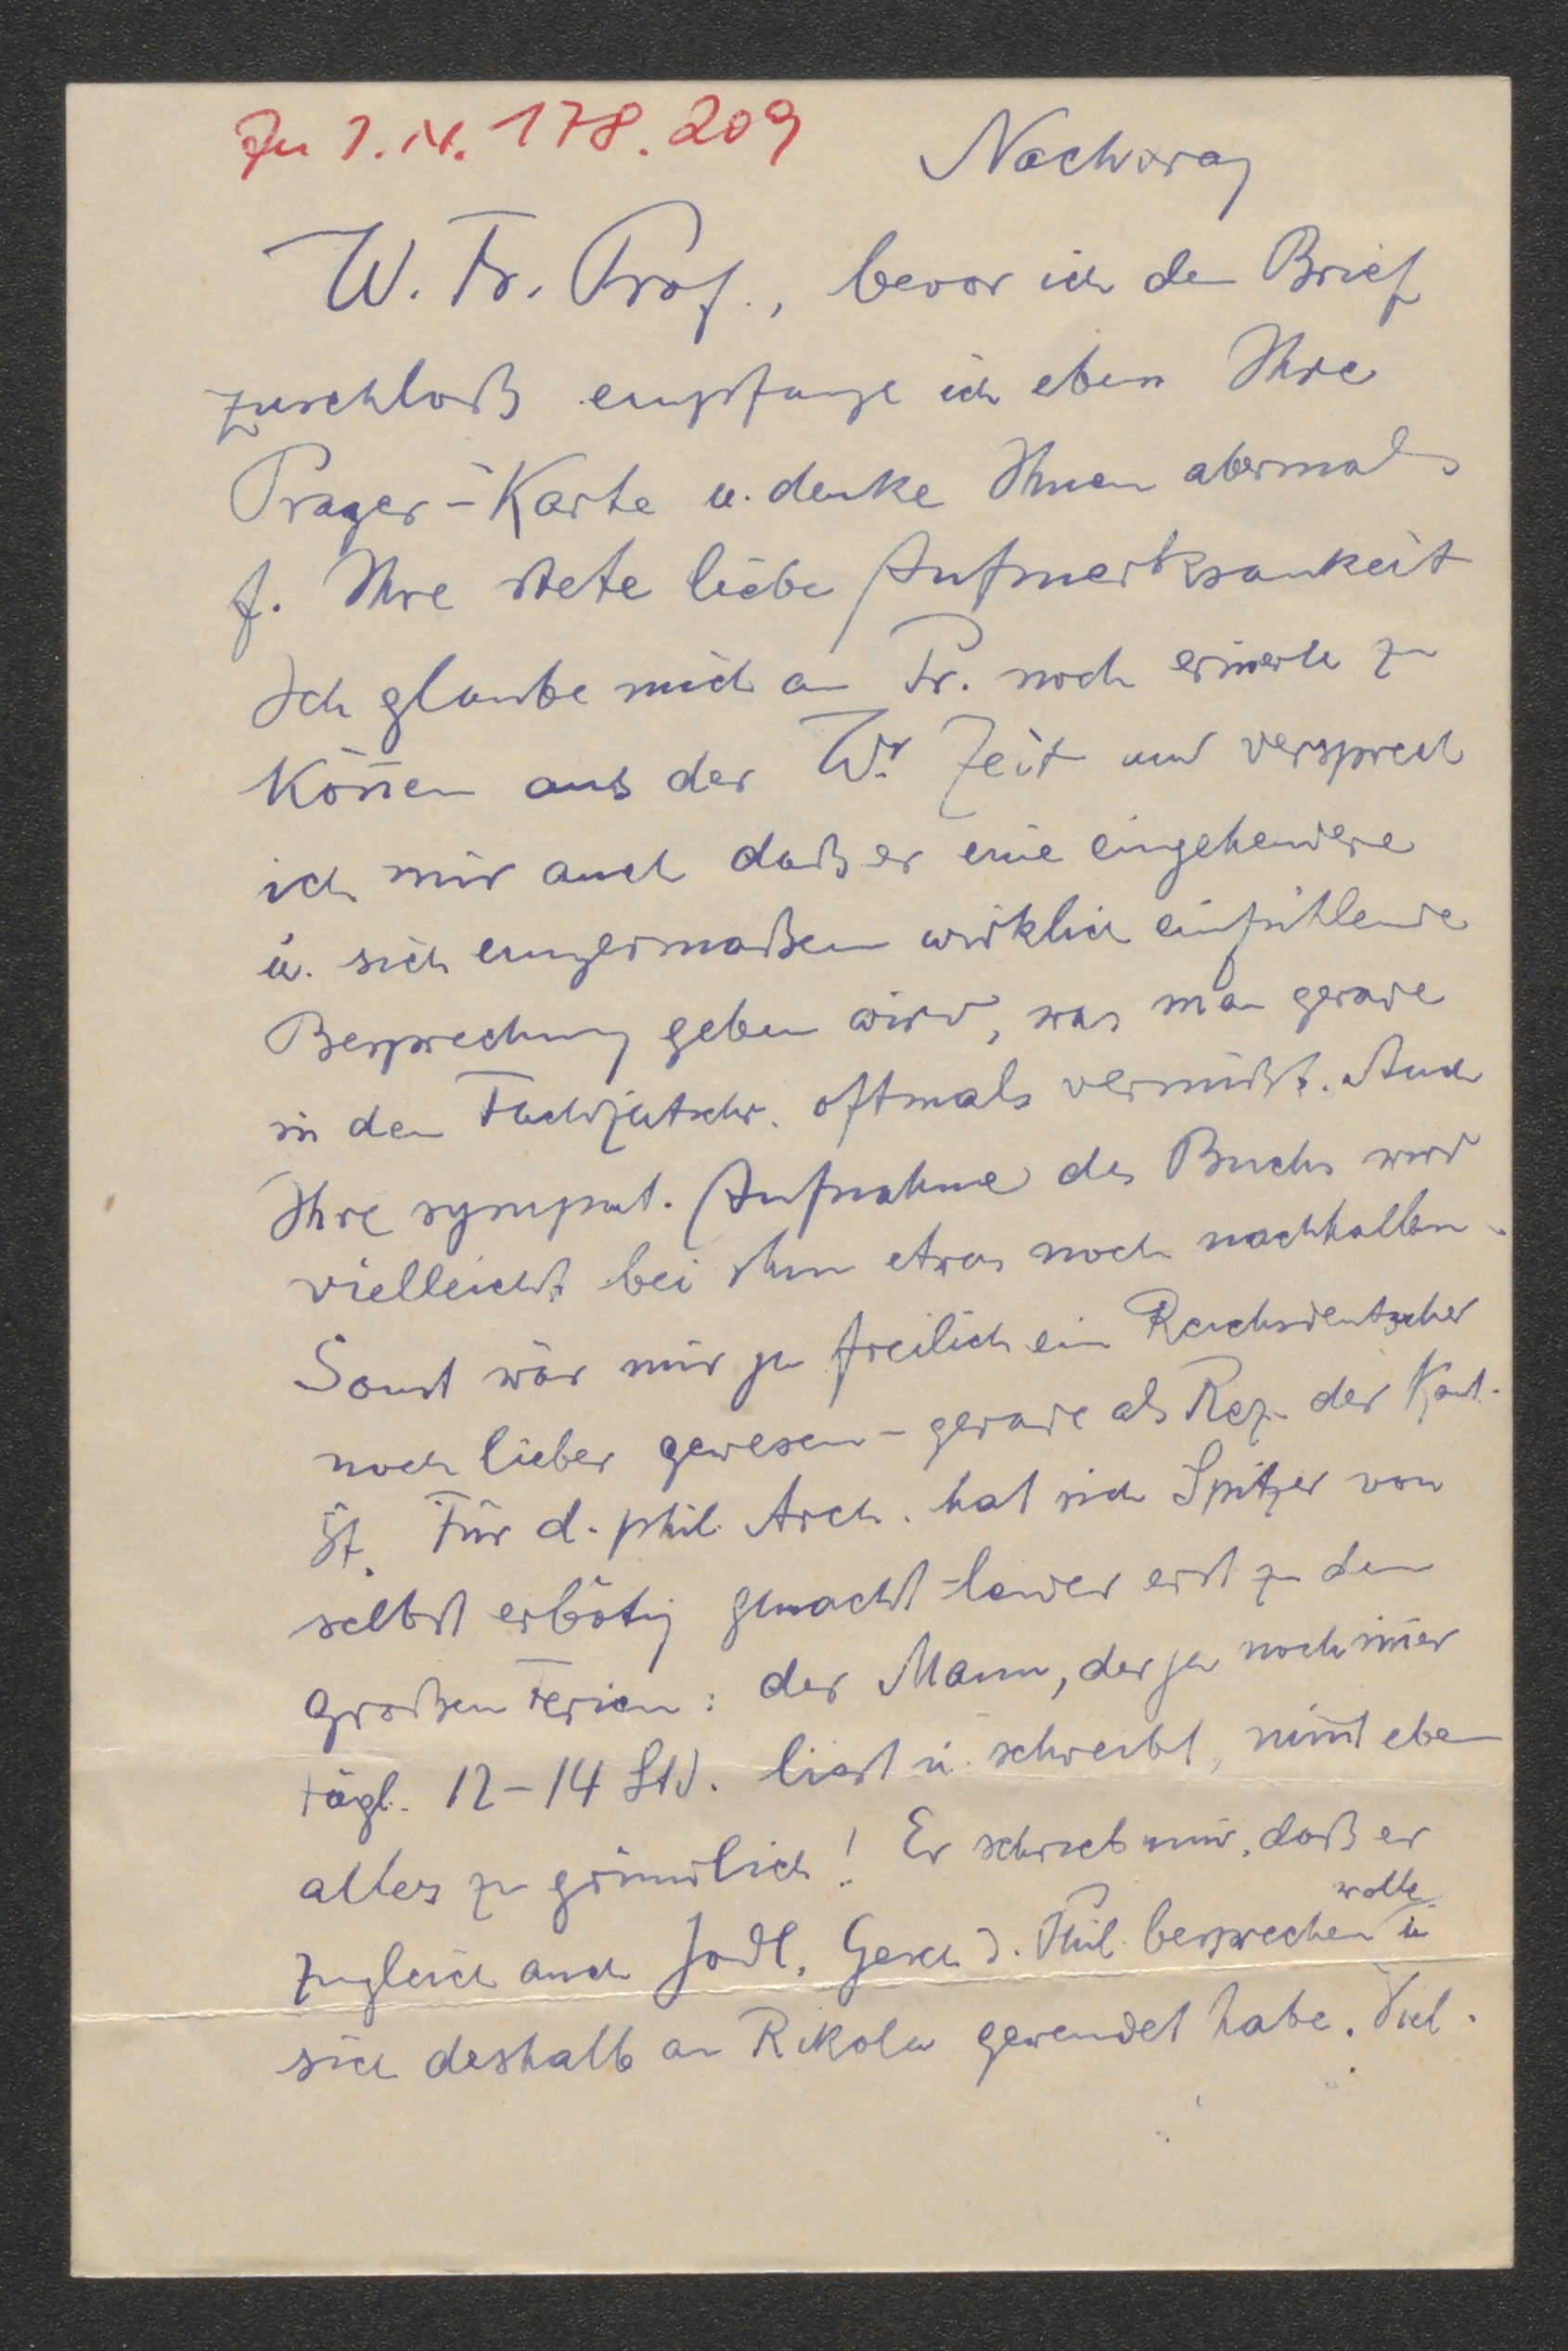 Zu I.N. 178.209
Nachtrag
W. Fr. Prof., bevor ich den Brief
zuschloß empfange ich eben Ihre
Prager-Karte u. danke Ihnen abermals
f. Ihre stete liebe Aufmerksamkeit
Ich glaube mich an Fr. noch erinern zu
köñen aus der Wr Zeit und versprech
ich mir auch daß er eine eingehendere
u. sich einigermaßen wirklich einfühlende
Besprechung geben wird, was man gerade
in den Fachzeitschr. oftmals vermißt. Auch
Ihre sympat. Aufnahme des Buchs wird
vielleicht bei ihm etwas noch nachhallen.
Sonst wär mir ja freilich ein Reichsdeutscher
noch lieber gewesen - gerade als Rez. der Kant-
St. Für d. phil. Arch. hat sich Spitzer von
selbst erbötig gemacht - leider erst zu den
großen Ferien: der Mann, der ja noch im̄er
tägl. 12-14 Std. liest u. schreibt, nim̄t eben
alles zu gründlich! Er schrieb mir, daß er
zugleich auch Jodl, Gesch d. Phil. besprechen wolle u
sich deshalb an Rikola gewendet habe. Viel-